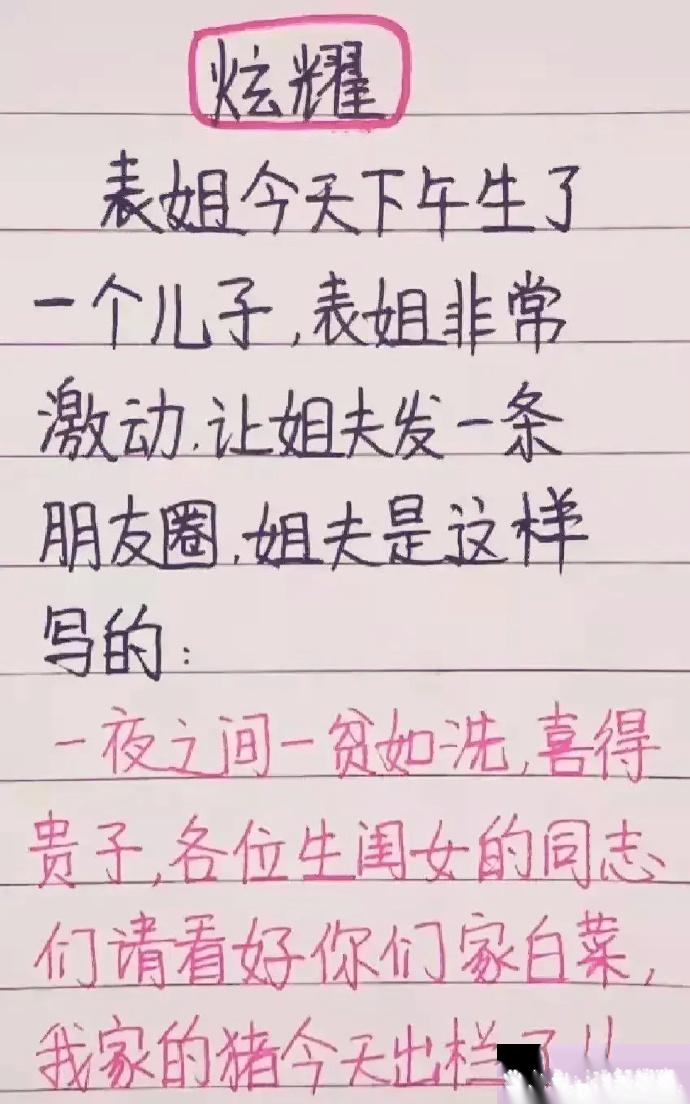 炫耀
表姐今天下午生了
一个儿子,表姐非常
激动.让姐夫发一条
朋友圈.姐夫是这样
写的:
一夜之间一贫如洗,喜得
贵子,各位生闺女的同志
们请看好你们家白菜,
我家的猪今天出栏了!!